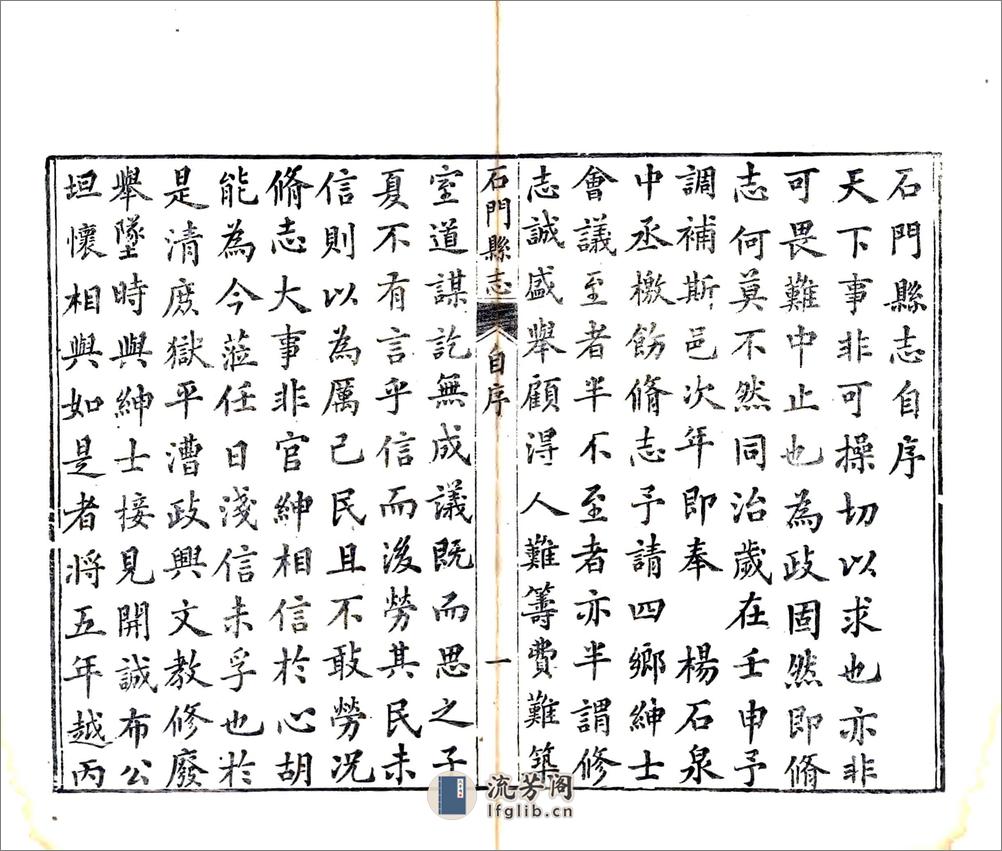 石門縣志自序
天下事非可操切以求也亦非
可畏難中止也為政固然即脩
志何莫不然同治歲在壬申予
調補斯邑次年即奉 楊石泉
中丞檄飭脩志予請四鄉紳士
會議至者半不至者亦半謂修
志誠盛舉顧得人難籌費難築
石門縣志 自序 一
室道謀訖無成議既而思之子
夏不有言乎信而後勞其民未
信則以為厲己民且不敢勞況
脩志大事非官紳相信於心胡
能為今蒞任日淺信未孚也於
是清庶獄平漕政興文教修廢
舉墜時與紳士接見開誠布公
坦懷相與如是者將五年越丙
流芳阁
lfglib.cn